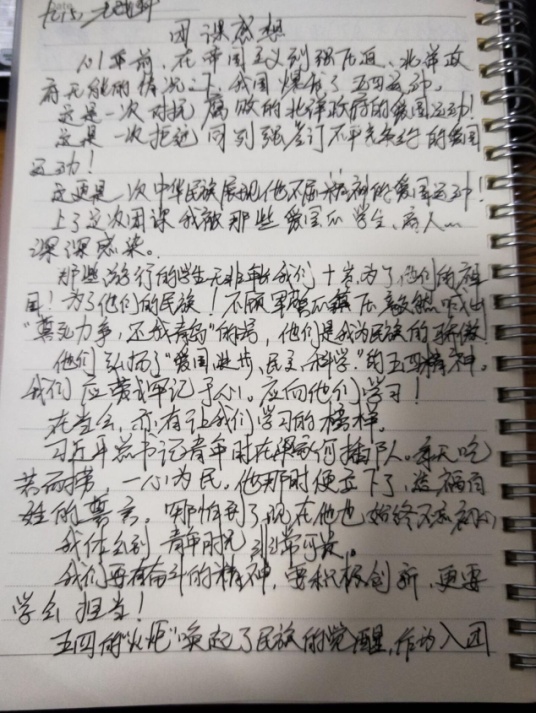 团课感想
以平前,在帝国主义列强压迫、北洋政
府无能的情况下,我国爆发了五四运动。
这是一次对抗腐败的北洋政府的爱国运动!
这是一次拒绝同列强签订不平等条约的爱国
运动!
这更是次中华民族展现他不屈精神的爱国运动!
上了这次团课我被那些爱国学生、商人…
深深感染。
那些游行的学生无非我们十岁,为了他们的祖
国!为了他们的民族!不顾军警镇压毅然喊出
"誓死力争,还我青岛"的号,他们是我为民族的骄傲
他们弘扬了"爱国、进步、民主、科学"的五四精神。
我们应当牢记于心。应向他们学习!
在当今,亦有让我们学习的榜样。
习近平总书记青年时在梁家河插队。每天吃
苦耐劳,一心为民。他那时便立下了,造福百
姓的誓言。哪怕到了现在他也始终不忘初心
我体会到青年时光非常可贵。
我们要有奋斗的精神,要积极创新,更要
学会担当!
五四的"火炬"唤起了民族的觉醒,作为入团